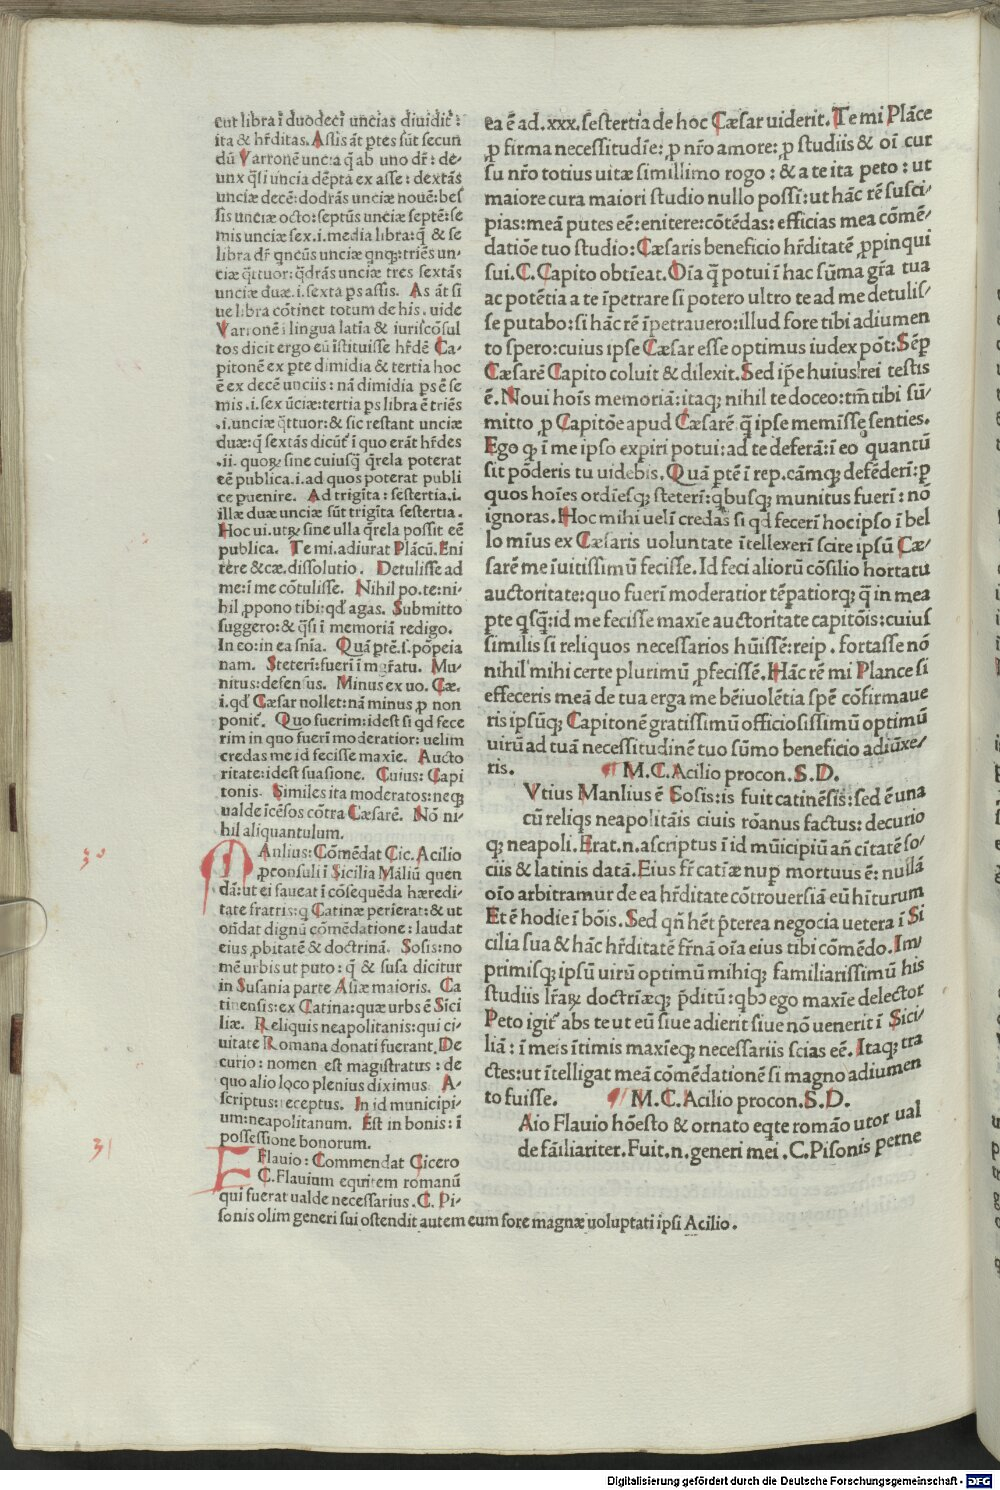 cut libra ī duodecī uncias diuidit̄:
ita & hr̄ditas. Assis āt ptes sūt secun
dū Varronē uncia q̄ ab uno dr̄: de-
unx q̄si uncia dēpta ex asse: dextās
unciæ decē: dodrās unciæ nouē: bes
sis unciæ octo: septūs unciæ septē: se
mis unciæ sex .i. media libra: q̄ & se
libra dr̄ qncūs unciæ qnq;: triēs un-
ciæ q̄ttuor: q̄drās unciæ tres sextās
unciæ duæ .i. sexta ps assis. As āt si
ue libra cōtinet totum de his . uide
Varronē ī lingua latia & iuriscōsul
tos dicit ergo eū īstituisse hr̄dē Ca-
pitonē ex pte dimidia & tertia hoc
ē ex decē unciis: nā dimidia ps ē se
mis .i. sex ūciæ: tertia ps libra ē triēs
.i. unciæ q̄ttuor: & sic restant unciæ
duæ: q̄ sextās dicūt̄ ī quo erāt hr̄des
.ii. quoꝝ sine cuiusq̄ q̄rela poterat
eē publica .i. ad quos poterat publi
ce puenire. Ad trigīta: sestertia .i.
illæ duæ unciæ sūt trigīta sestertia.
Hoc ui. utꝝ sine ulla q̄rela possit eē
publica. Te mi. adiurat Plācū. Eni
tere &cæ. dissolutio. Detulisse ad
me: ī me cōtulisse. Nihil po. te: ni-
hil ꝓpono tibi: qd̄ agas. Submitto
suggero: & q̄si ī memoriā redigo.
In eo: in ea snīa. Quā ptē. s. pōpeia
nam. Steterī: fuerī ī mgr̄atu. Mu-
nitus: defensus. Minus ex uo. Cæ.
.i. qd̄ Cæsar nollet: nā minus ꝓ non
ponit̄. Quo fuerim: idest si qd fece
rim in quo fuerī moderatior: uelim
credas me id fecisse maxīe. Aucto
ritate: idest suasione. Cuius: Capi
tonis. Similes ita moderatos: neq;
ualde īcēsos cōtra Cæsarē. Nō ni-
hil aliquantulum.
30
MAnlius: Cōmēdat Cic. Acilio
ꝓconsuli ī Sicilia Māliū quen
dā: ut ei faueat ī cōsequēda hæredi-
tate fratris: q Catinæ perierat: & ut
oñdat dignū cōmēdatione: laudat
eius ꝓbitatē & doctrinā. Sosis: no
mē urbis ut puto: q̄ & susa dicitur
in Susania parte Asiæ maioris. Ca
tinensis: ex Catina: quæ urbs ē Sici
liæ. Reliquis neapolitanis: qui ci-
uitate Romana donati fuerant. De
curio: nomen est magistratus: de
quo alio loco plenius diximus. A-
scriptus: receptus. In id municipi-
um: neapolitanum. Est in bonis: ī
possessione bonorum.
31
EFlauio: Commendat Cicero
C. Flauium equitem romanū
qui fuerat ualde necessarius . C. Pi-
sonis olim generi sui ostendit autem eum fore magnæ uoluptati ipsi Acilio.
ea ē ad .xxx. sestertia de hoc Cæsar uiderit. Te mi Plāce
ꝓ firma necessitudīe: ꝓ nr̄o amore: ꝓ studiis & oī cur
su nr̄o totius uitæ simillimo rogo: & a te ita peto: ut
maiore cura maiori studio nullo possī: ut hāc rē susci-
pias: meā putes eē: enitere: cōtēdas: efficias mea cōmē-
datiōe tuo studio: Cæsaris beneficio hr̄ditatē ꝓpinqui
sui. C. Capito obtīeat. Oīa q̄ potui ī hac sūma gr̄a tua
ac potētia a te īpetrare si potero ultro te ad me detulis-
se putabo: si hāc rē īpetrauero: illud fore tibi adiumen
to spero: cuius ipse Cæsar esse optimus iudex pōt: Sēp
Cæsarē Capito coluit & dilexit. Sed ipē huius rei testis
ē. Noui hoīs memoriā: itaq; nihil te doceo: tm̄ tibi sū-
mitto ꝓ Capitōe apud Cæsarē q̄ ipse memīsse senties.
Ego q ī me ipso expiri potui: ad te deferā: ī eo quantū
sit pōderis tu uidebis. Quā ptē ī rep. cāmq; defēderī: ꝓ
quos hoīes ordīesq; steterī: qbusq; munitus fuerī: nō
ignoras. Hoc mihi uelī credas si qd fecerī hoc ipso ī bel
lo mīus ex Cæsaris uoluntate ītellexerī scire ipsū Cæ-
sarē me īuitissimū fecisse. Id feci aliorū cōsilio hortatu
auctoritate: quo fuerī moderatior tēpatiorq; q̄ in mea
pte qsq̄: id me fecisse maxīe auctoritate capitōis: cuius
similis si reliquos necessarios hūissē: reip . fortasse nō
nihil mihi certe plurimū ꝓfecissē. Hāc rē mi Plance si
effeceris meā de tua erga me bēiuolētia spē cōfirmaue
ris ipsūq; Capitonē gratissimū officiosissimū optimū
uirū ad tuā necessitudinē tuo sūmo beneficio adiūxe-
ris. ¶ M. C. Acilio procon. S. D.
Vtius Manlius ē Sosis: is fuit catinēsis: sed ē una
cū reliqs neapolitāis ciuis rōanus factus: decurio
q; neapoli. Erat .n. ascriptus ī id mūicipiū añ ciītatē so-
ciis & latinis datā. Eius fr̄ catīæ nup mortuus ē: nullā
oīo arbitramur de ea hr̄ditate cōtrouersiā eū hīturum
Et ē hodie ī bōis. Sed qñ hēt p̄terea negocia uetera ī Si
cilia sua & hāc hr̄ditatē fr̄nā oīa eius tibi cōmēdo. Im-
primisq; ipsū uirū optimū mihiq; familiarissimū his
studiis lr̄aꝝ doctrīæq; p̄ditū: qbꝰ ego maxīe delector
Peto igit̄ abs te ut eū siue adierit siue nō uenerit ī Sici-
liā: ī meis ītimis maxīeq; necessariis scias eē. Itaq; tra
ctes: ut ītelligat meā cōmēdationē si magno adiumen
to fuisse. ¶ M. C. Acilio procon. S. D.
Aio Flauio hōesto & ornato eqte romāo utor ual
de fāiliariter. Fuit .n. generi mei . C. Pisonis perne
Digitalisierung gefördert durch die Deutsche Forschungsgemeinschaft - DFG